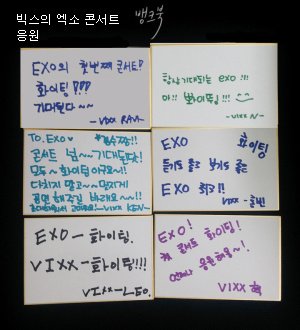 빅스의 엑소 콘서트
응원
뱅크북
EXO의 첫번째 콘서트!
화이팅!!!
기대된다~~
- VIXX RAVI -
항상 기대되는 EXO!!!
아!! 뽜이팅!!!
- VIXX N -
TO. EXO
콘서트 넘~~기대된당!
모두~ 화이팅이구요~!!
다치지 말고~~ 멋지게
공연 해주길 바래요~!!
VIXX KEN~
EXO 화이팅
듣기도 좋고 보기도 좋은
EXO 최고!
VIXX - 홍빈
EXO - 화이팅.
VIXX - 화이팅!!!!
VIXX - LEO.
EXO!
첫 콘서트 화이팅!
언제나 응원해용~!
VIXX 혁